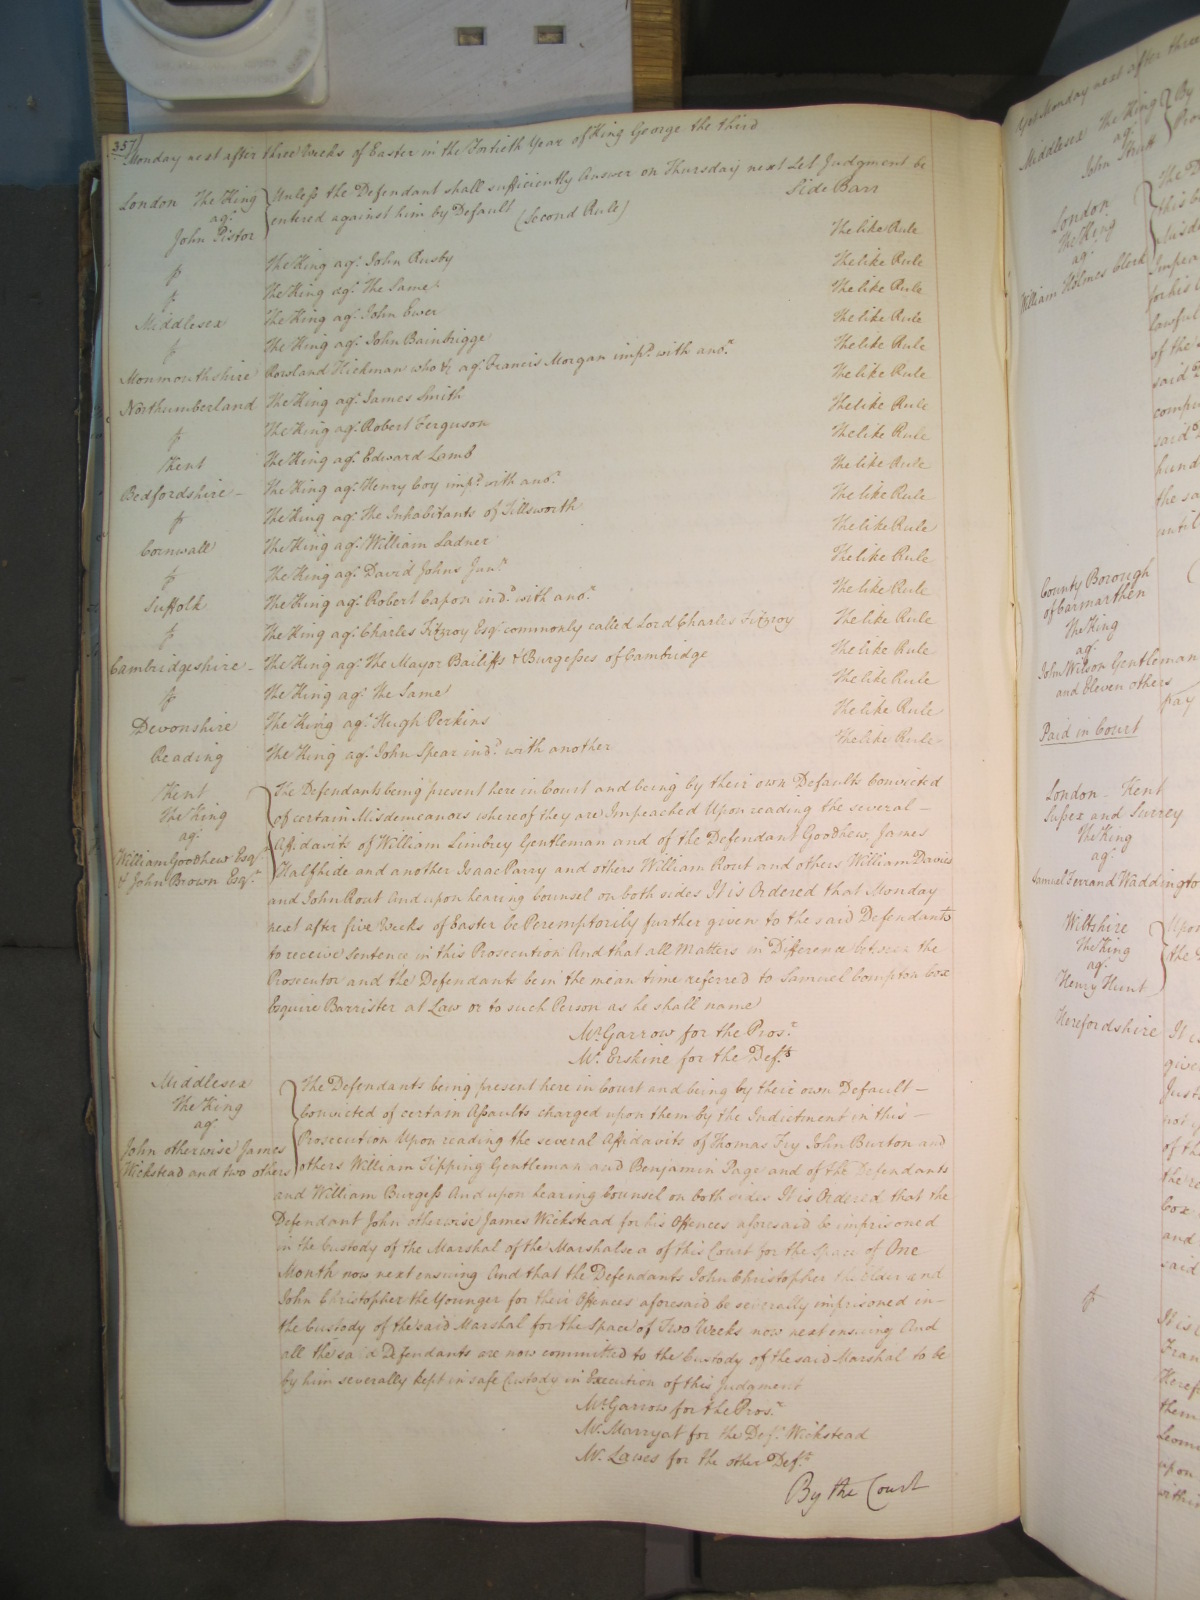 357
Monday next after three Weeks of Easter in the Fortieth Year of King George the third
London The King agt. John Pistor
Unless the Defendant shall sufficiently Answer on Thursday next Let Judgment be
entered against him by Default (Second Rule) Side Barr
The like Rule
The King agt. John Rusby The like Rule
The King agt. The Same The like Rule
Middlesex The King agt. John Ewer The like Rule
The King agt. John Bainbrigge The like Rule
Monmouthshire Rowland Hickman who &c agt. Francis Morgan impd. with anor. The like Rule
Northumberland The King agt. James Smith The like Rule
The King agt. Robert Ferguson The like Rule
Kent The King agt. Edward Lamb The like Rule
Bedfordshire - The King agt. Henry Coy impd. with anor. The like Rule
The King agt. The Inhabitants of Tillsworth The like Rule
Cornwall The King agt. William Ladner The like Rule
The King agt. David Johns Junr. The like Rule
Suffolk The King agt. Robert Capon indd. with anor. The like Rule
The King agt. Charles Fitzroy Esqr. commonly called Lord Charles Fitzroy The like Rule
Cambridgeshire - The King agt. The Mayor Bailiffs & Burgesses of Cambridge The like Rule
The King agt. The Same The like Rule
Devonshire The King agt. Hugh Perkins The like Rule
Reading The King agt. John Spear indd. with another The like Rule
Kent
The King
agt.
William Goodhew Esqr.
& John Brown Esqr.
The Defendants being present here in Court and being by their own Defaults Convicted
of certain Misdemeanors whereof they are Impeached Upon reading the several -
Affidavits of William Limbrey Gentleman and of the Defendant Goodhew James
Halfhide and another Isaac Parry and others William Rout and others William Davies
and John Rout And upon hearing Counsel on both sides It is Ordered that Monday
next after five Weeks of Easter be Peremptorily further given to the said Defendants
to receive Sentence in this Prosecution And that all Matters in Difference between the
Prosecutor and the Defendants be in the mean time referred to Samuel Compton Cox
Esquire Barrister at Law or to such Person as he shall name
Mr. Garrow for the Prosr.
Mr. Erskine for the Defts.
Middlesex
The King
agt.
John otherwise James
Wickstead and two others
The Defendants being present here in Court and being by their own Default -
Convicted of certain Assaults charged upon them by the Indictment in this -
Prosecution Upon reading the several Affidavits of Thomas Fry John Burton and
others William Tipping Gentleman and Benjamin Page and of the Defendants
and William Burgess And upon hearing Counsel on both sides It is Ordered that the
Defendant John otherwise James Wickstead for his Offences aforesaid be imprisoned
in the Custody of the Marshal of the Marshalsea of this Court for the Space of One
Month now next ensuing And that the Defendants John Christopher the elder and
John Christopher the Younger for their Offences aforesaid be severally imprisoned in
the Custody of the said Marshal for the Space of Two Weeks now next ensuing And
all the said Defendants are now committed to the Custody of the said Marshal to be
by him severally kept in safe Custody in Execution of this Judgment
Mr. Garrow for the Prosr.
Mr. Marryat for the Deft. Wickstead
Mr. Lawes for the other Defts.
By the Court
Yet Monday next after three
Middlesex The King
agt.
John Stratt
By
London
The King
agt.
William Holmes Cleed
The
this
for his
lawful
of the
said
said
hund
the sa
until
County Borough
of Carmarthen
The King
agt.
John Wilson Gentleman
and Eleven others
pay
Paid in Court
London - Kent
Sussex and Surrey
The King
agt.
Samuel Ferrand Waddington
Wiltshire
The King
agt.
Henry Hunt
Upon
the
Herefordshire
It is
given
Just
not
of th
the re
Cox
and
said
It is
Fran
Heref
them
Leom
upon
within